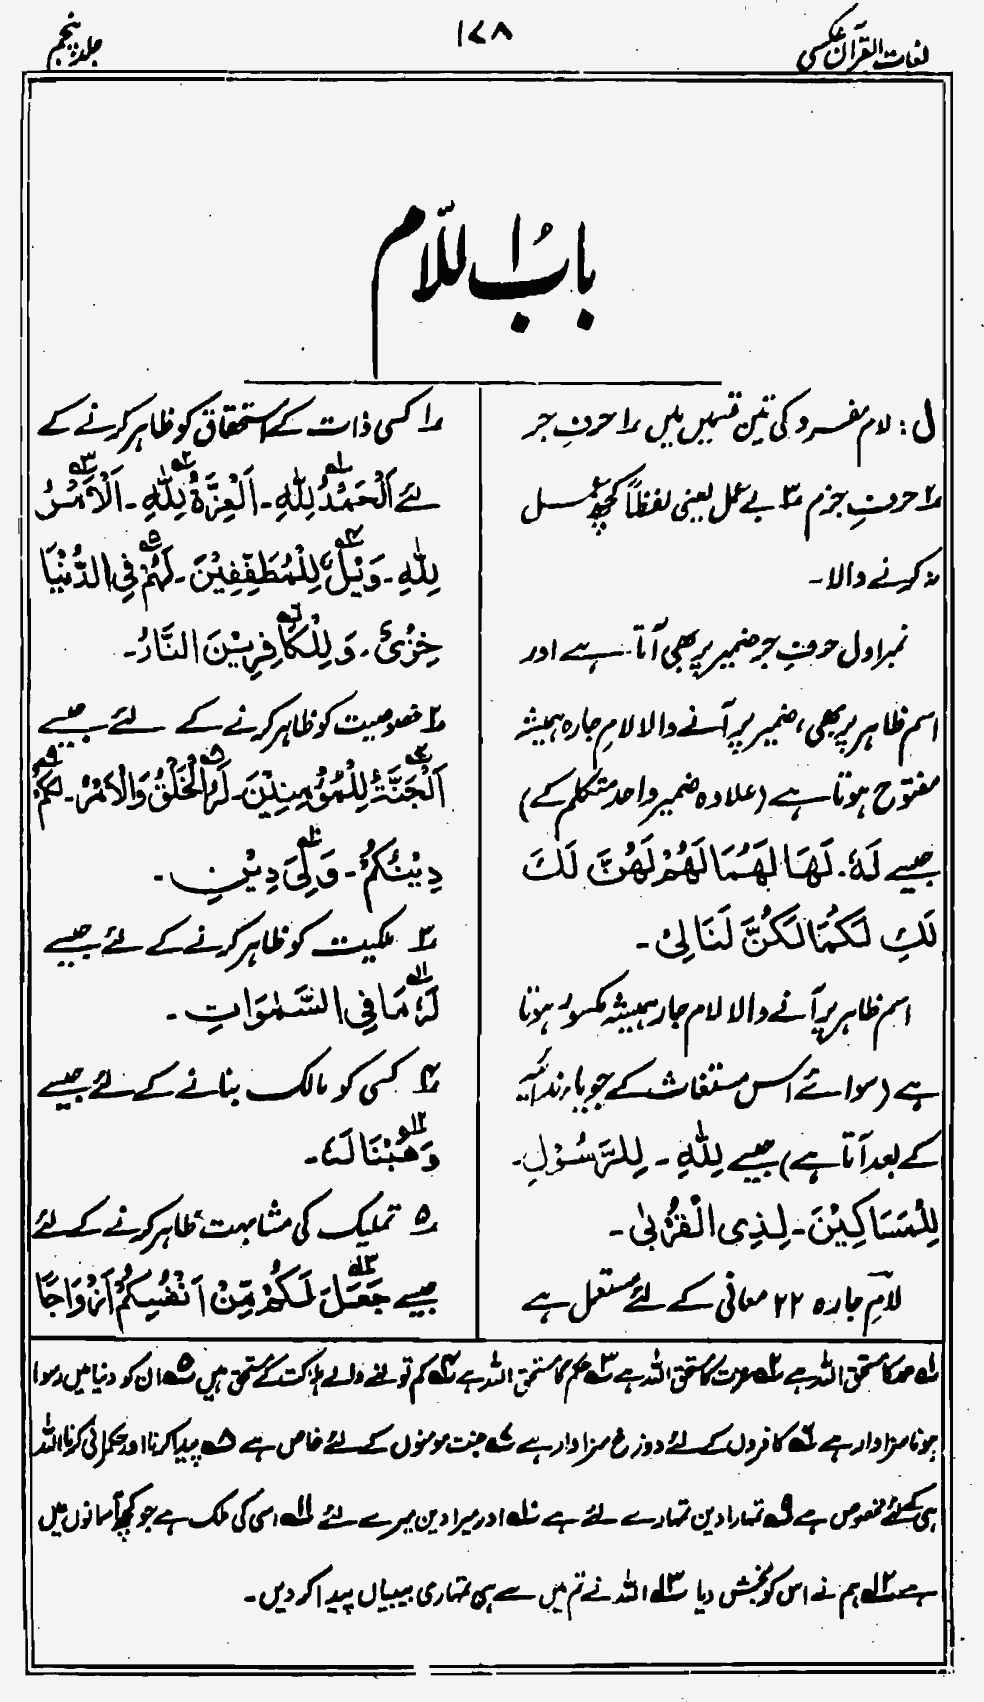 لغات القرآن عکسی
۱۷۸
جلد پنجم
بابُ اللّام
ل : لام مفرد کی تین قسمیں ہیں ۱؍ حرفِ جر
۲؍ حرفِ جزم ۳؍ بے عمل یعنی لفظاً کچھ عمل
نہ کرنے والا۔
نمبر اول حرفِ جر ضمیر پر بھی آتا ہے اور
اسم ظاہر پر بھی، ضمیر پر آنے والا لامِ جارہ ہمیشہ
مفتوح ہوتا ہے (علاوہ ضمیر واحد متکلم کے)
جیسے لَهٗ۔ لَهَا لَهُمَا لَهُمْ لَهُنَّ لَكَ
لَكِ لَكُمَا لَكُنَّ لَنَا لِیْ ۔
اسم ظاہر پر آنے والا لام جار ہمیشہ مکسور ہوتا
ہے (سوائے اس مستغاث کے جو یاء ندائیہ
کے بعد آتا ہے) جیسے لِلّٰہِ ۔ لِلرَّسُوْلِ ۔
لِلْمَسَاكِيْنَ ۔ لِذِی الْقُرْبٰی ۔
لامِ جارہ ۲۲ معانی کے لئے مستعمل ہے
۱؍ کسی ذات کے استحقاق کو ظاہر کرنے کے
لئے اَلْحَمْدُ لِلّٰہِ ۱؎ ۔ اَلْعِزَّۃُ لِلّٰہِ ۲؎ ۔ اَلْاَمْرُ ۳؎
لِلّٰہِ ۔ وَيْلٌ ۴؎ لِلْمُطَفِّفِيْنَ ۔ لَهُمْ ۵؎ فِی الدُّنْيَا
خِزْیٌ ۔ وَ لِلْكَافِرِيْنَ ۶؎ النَّارُ ۔
۲؍ خصوصیت کو ظاہر کرنے کے لئے جیسے
اَلْجَنَّۃُ ۷؎ لِلْمُؤْمِنِيْنَ ۔ لَهُ الْخَلْقُ ۸؎ وَالْاَمْرُ ۔ لَكُمْ ۹؎
دِيْنُكُمْ ۔ وَلِیَ ۱۰؎ دِيْنِ ۔
۳؍ ملکیت کو ظاہر کرنے کے لئے جیسے
لَهٗ ۱۱؎ مَا فِی السَّمٰوَاتِ ۔
۴؍ کسی کو مالک بنانے کے لئے جیسے
وَهَبْنَا ۱۲؎ لَهٗ ۔
۵؍ تملیک کی مشابہت ظاہر کرنے کے لئے
جیسے جَعَلَ ۱۳؎ لَكُمْ مِّنْ اَنْفُسِكُمْ اَزْوَاجًا
۱؎ حمد کا مستحق اللہ ہے ۲؎ عزت کا مستحق اللہ ہے ۳؎ حکم کا مستحق اللہ ہے ۴؎ کم تولنے والے ہلاکت کے مستحق ہیں ۵؎ ان کو دنیا میں رسوا
ہونا سزاوار ہے ۶؎ کافروں کے لئے دوزخ سزاوار ہے ۷؎ جنت مومنوں کے لئے خاص ہے ۸؎ پیدا کرنا اور حکمرانی کرنا اللہ
ہی کیلئے مخصوص ہے ۹؎ تمہارا دین تمہارے لئے ہے ۱۰؎ اور میرا دین میرے لئے ۱۱؎ اسی کی ملک ہے جو کچھ آسمانوں میں
ہے ۱۲؎ ہم نے اس کو بخش دیا ۱۳؎ اللہ نے تم میں سے ہی تمہاری بیبیاں پیدا کر دیں ۔